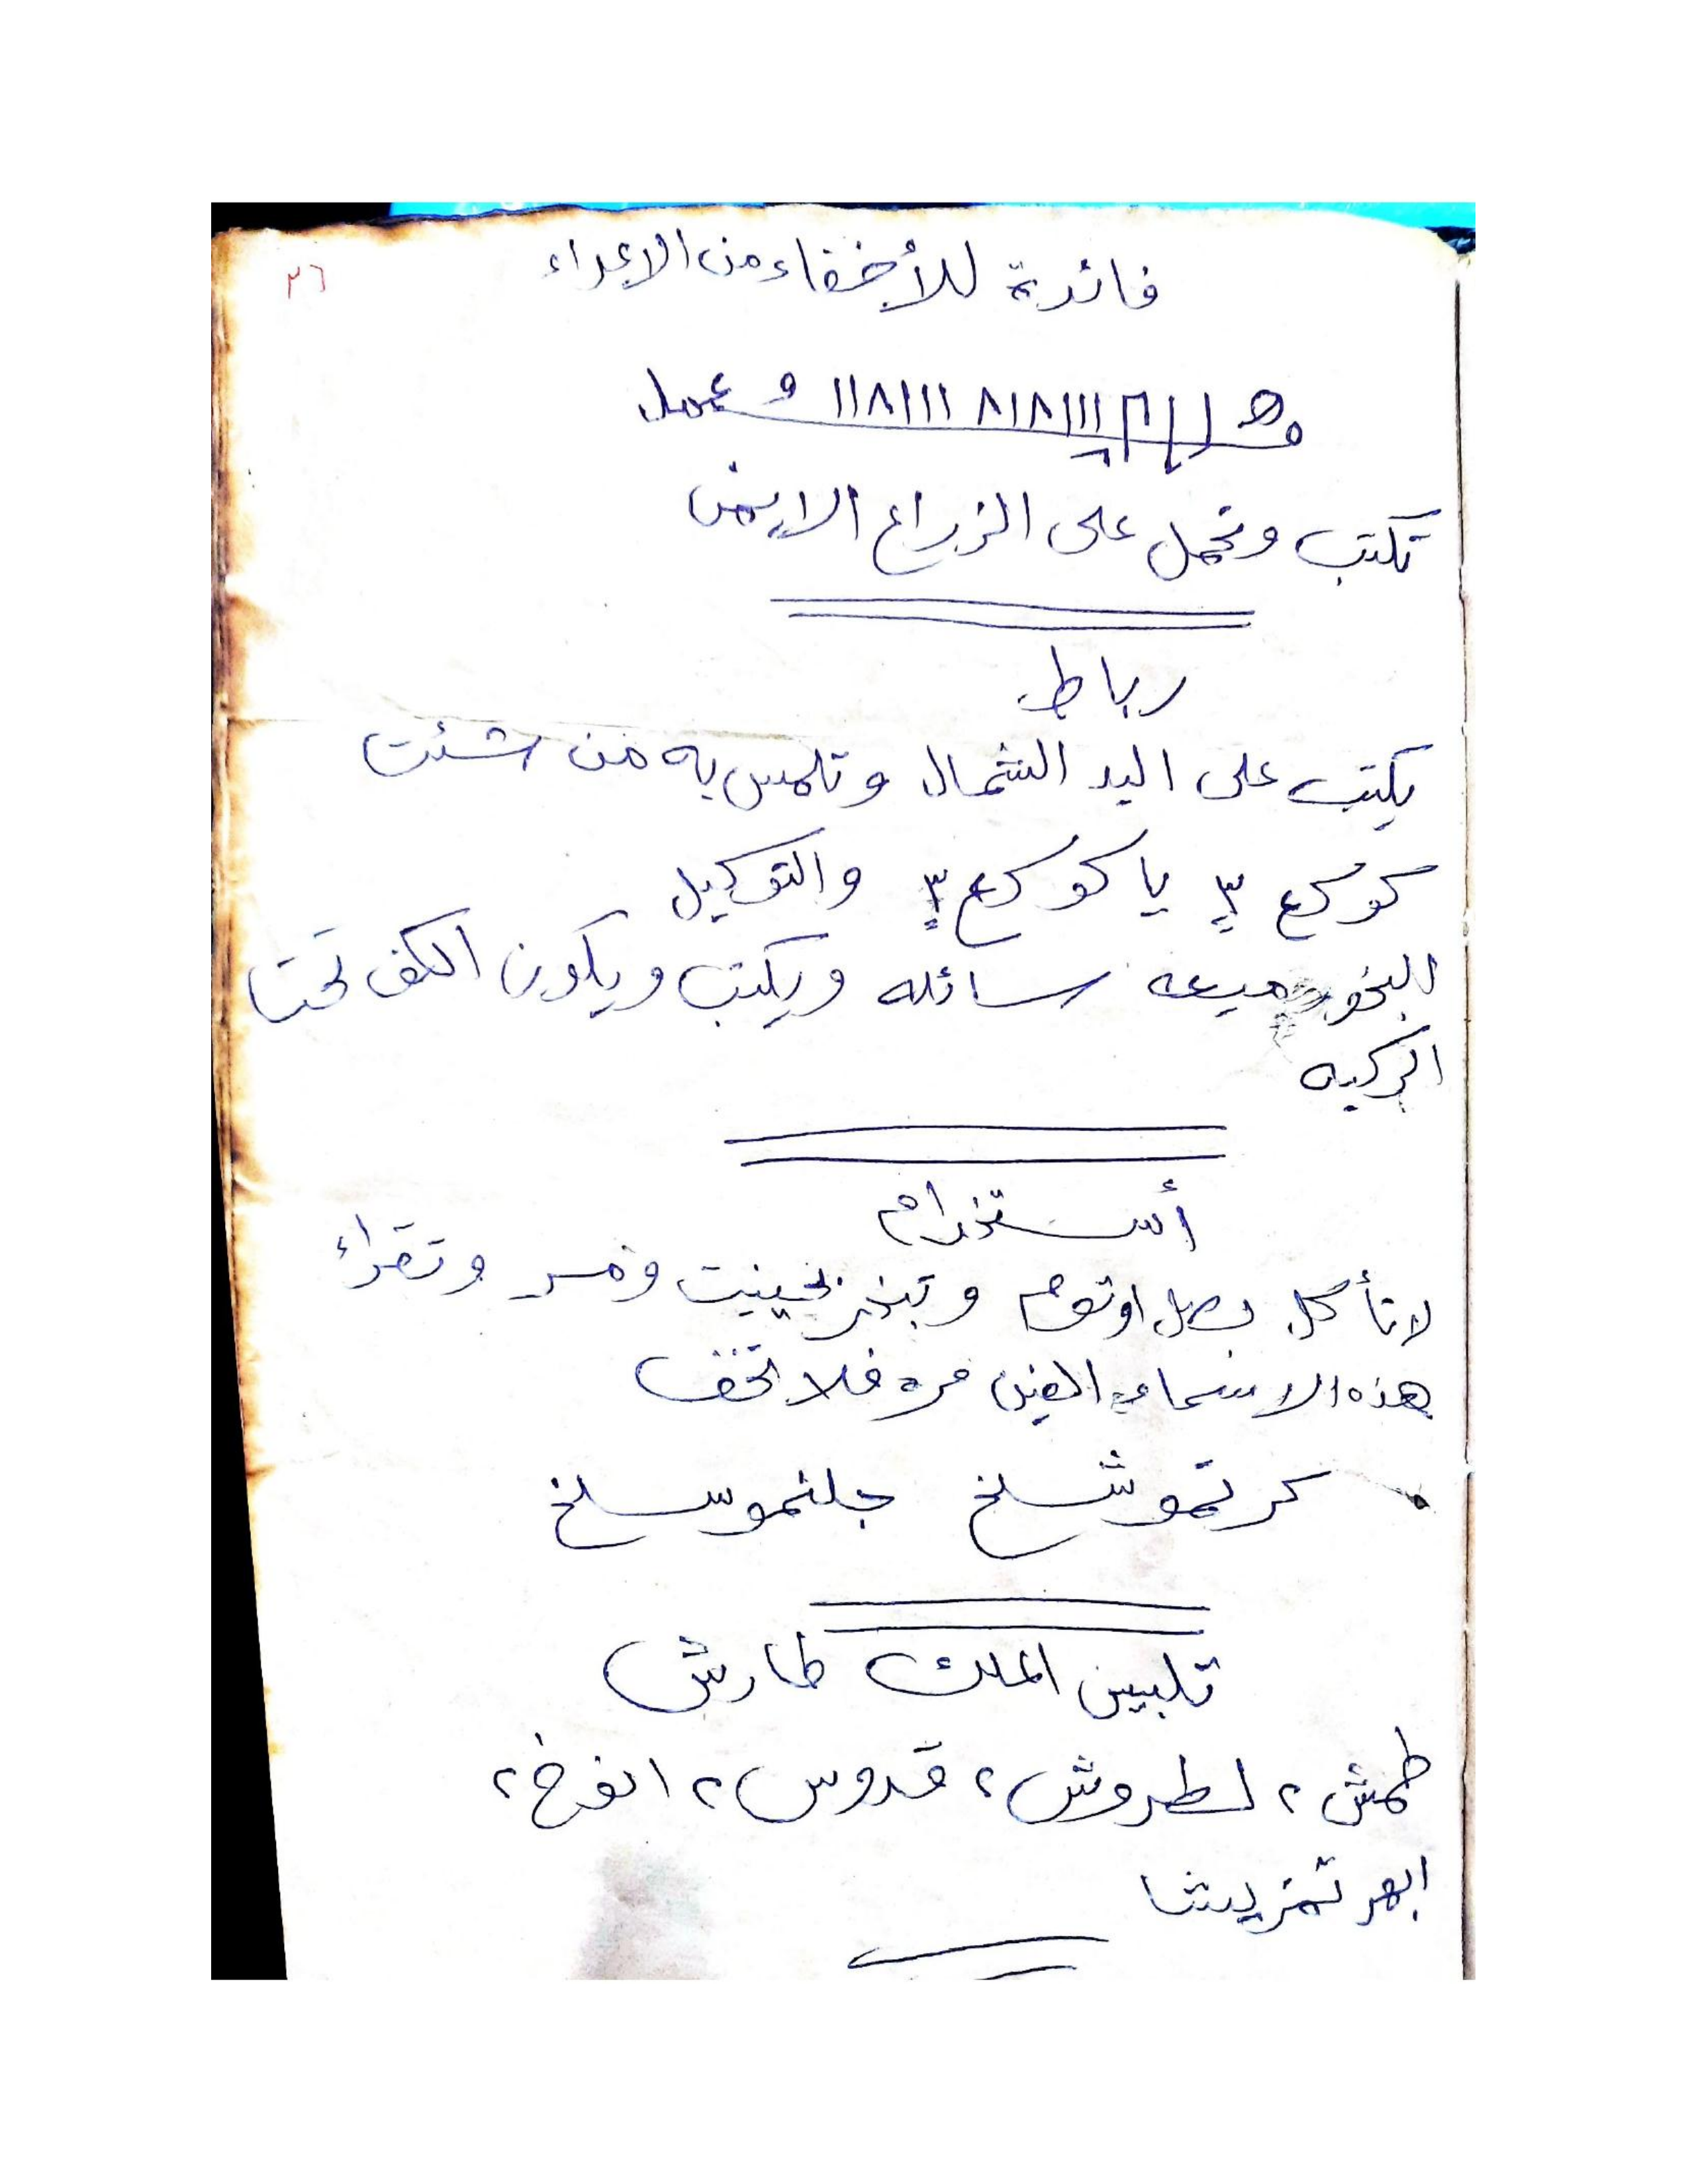 ٢٦
فائدة للأخفاء من الاعداء
١١٨١١١ ٨١٨١١١ و عمل
تكتب وتحمل على الزراع الايمن
رباط
يكتب على اليد الشمال وتلمس به من شئت
كوكع ٣ يا كوكع ٣ والتوكيل
البخور ميعه سائله ويكتب ويكون الكف تحت
الركبه
أستخدام
لا تأكل بصل او توم وتبخر ومر وتقراء
هذه الاسماء الفين مره فلا تخف
كرتموشلخ جلنموسلخ
تلبيس الملك طارش
طمش ٢ لطروش ٢ قدوس ٢ انوخ ٢
ابهر تمزيشا